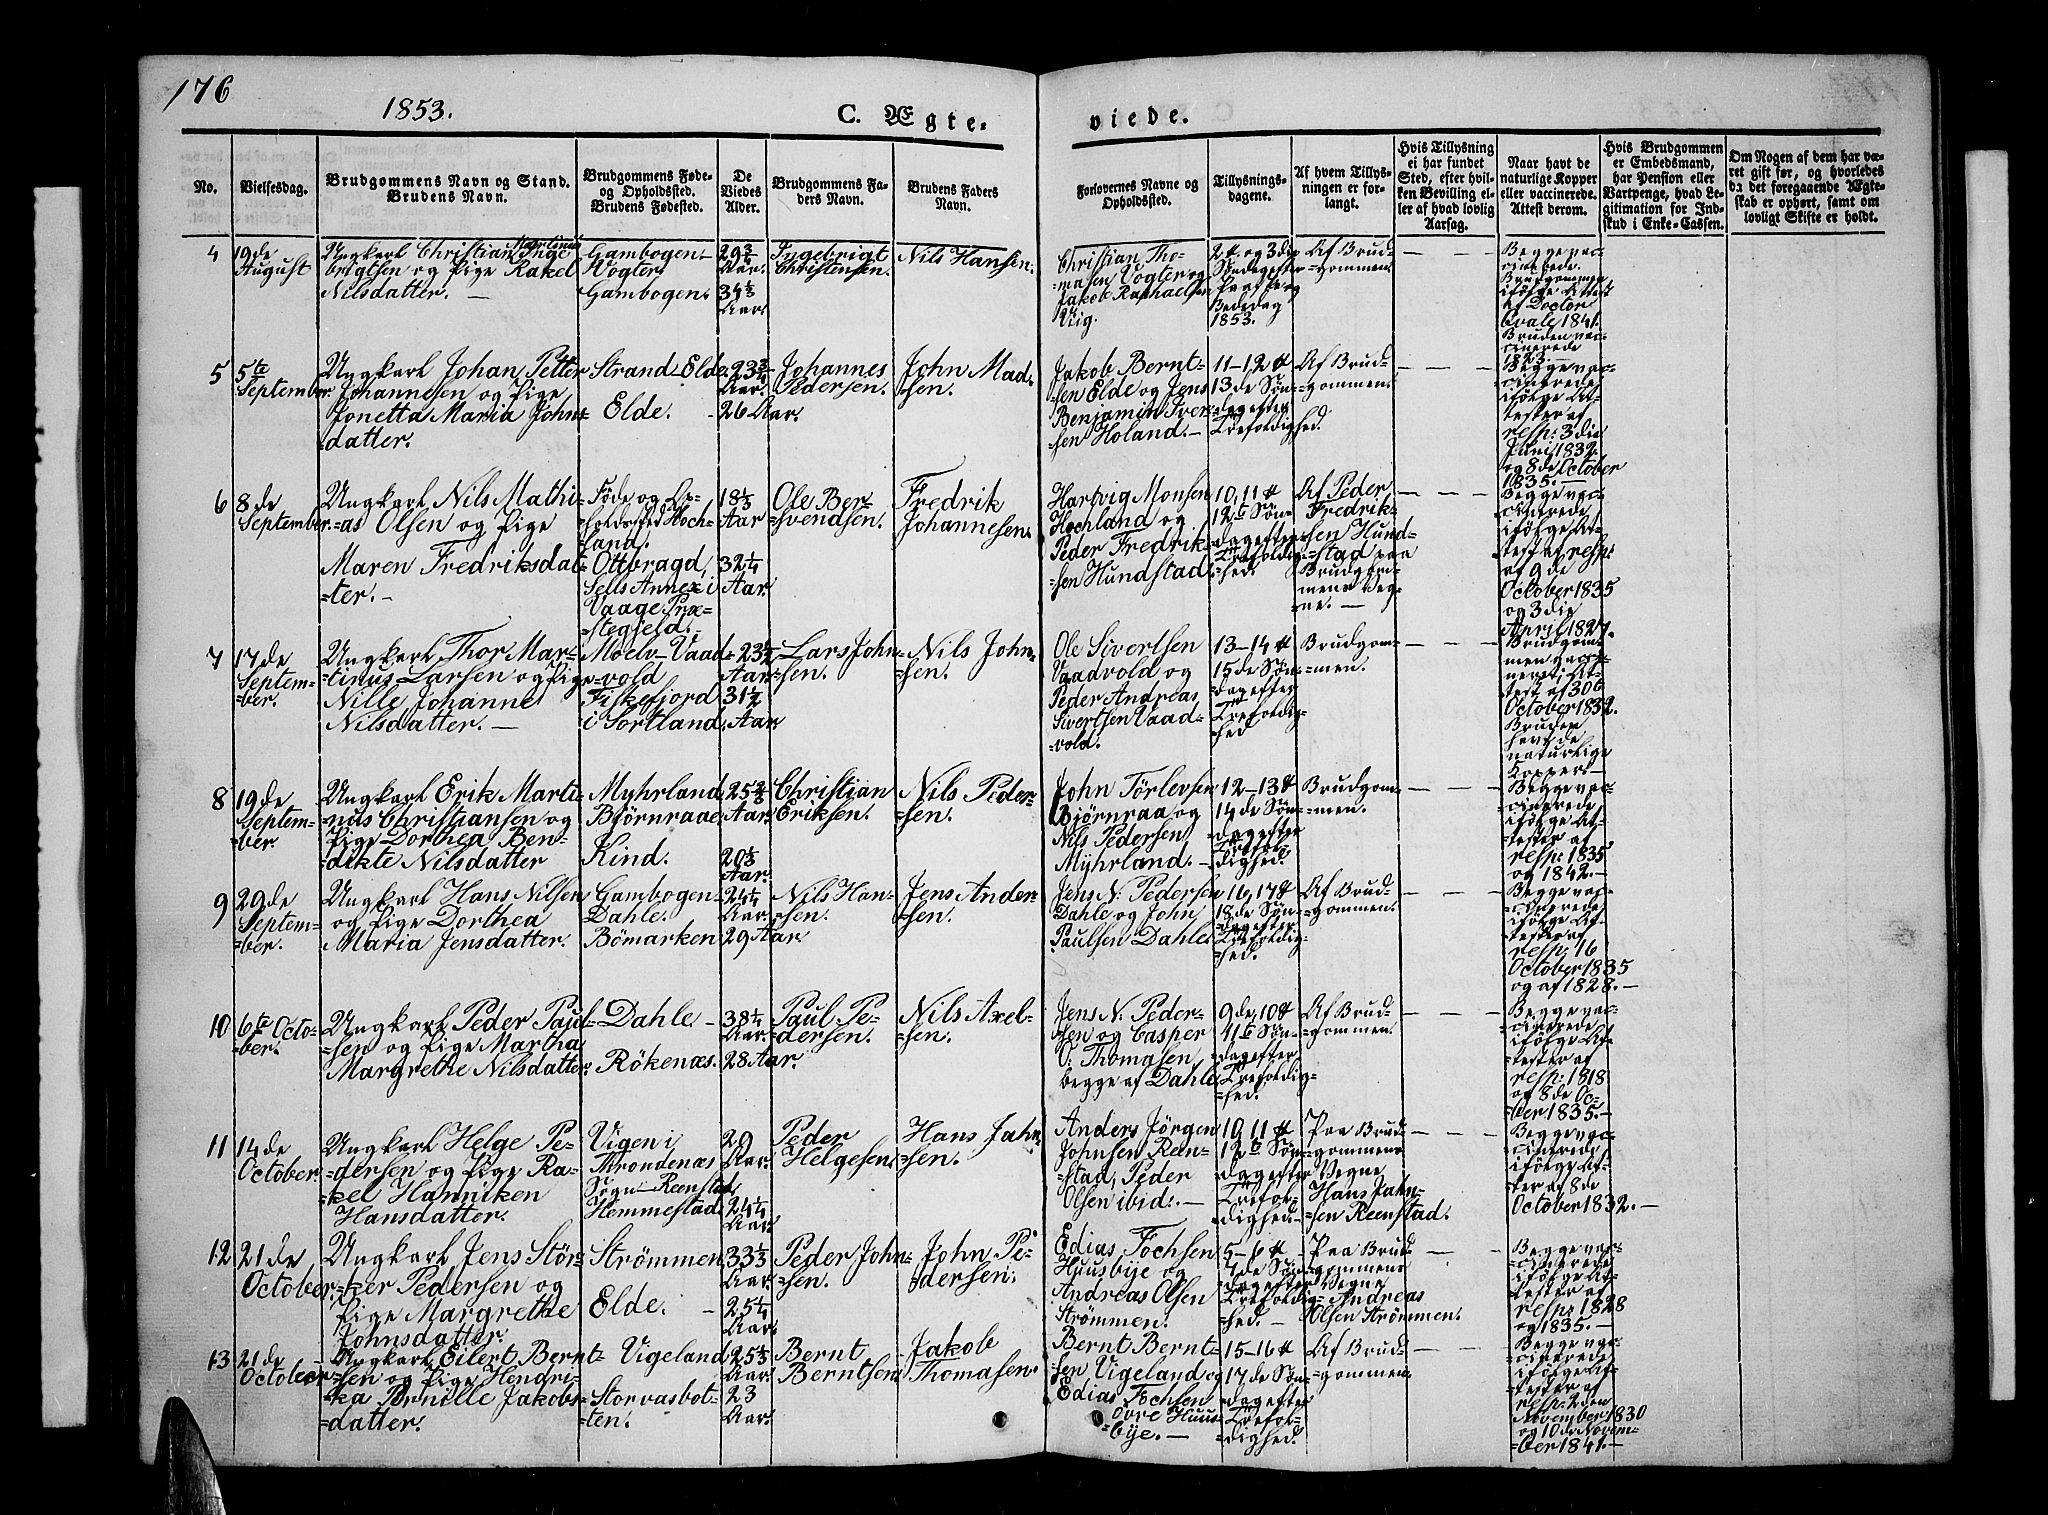 176
1853.
C. Ægte-
viede.
No.
Vielsesdag.
Brudgommens Navn og Stand.
Brudens Navn.
Brudgommens Føde-
og Opholdssted.
Brudens Fødested.
De
Viedes
Alder.
Brudgommens Fa-
ders Navn.
Brudens Faders
Navn.
Forlovernes Navne og
Opholdssted.
Tillysnings-
dagene.
Af hvem Tillys-
ningen er for-
langt.
Hvis Tillysning
ei har fundet
Sted, efter hvil-
ken Bevilling el-
ler af hvad lovlig
Aarsag.
Naar havt de
naturlige Kopper
eller vaccinerede.
Attest derom.
Hvis Brudgommen
er Embedsmand,
har Pension eller
Vartpenge, hvad Le-
gitimation for Ind-
skud i Enke-Cassen.
Om Nogen af dem har væ-
ret gift før, og hvorledes
da det foregaaende Ægte-
skab er ophørt, samt om
lovligt Skifte er holdt.
4
19de
August
Ungkarl Christian Martinus Inge
brigtsen og Pige Rakel
Nilsdatter. —
Gambogen-
Vogter
Gambogen.
29¾
Aar.
34⅓
Aar.
Ingebrigt
Christensen.
Nils Hansen.
Christian Tho-
=masen Vogter og
Jakob Raphaelsen
Vig.
2d. og 3die
Søndag efter
Paaske og
Bededag
1853.
Af Brud=
=gommen.
Begge vac=
cinerede.
Brudgommen
ifølge Attest
af Doctor
Qvale 1841.
Bruden vac=
cinerede
1823. —
5
5te
September.
Ungkarl Johan Petter
Johannesen og Pige
Jonetta Maria Johns=
datter.
Strand-Elde
Elde.
23¾
Aar.
26 Aar.
Johannes
Pedersen.
John Mad=
sen.
Jakob Bernt=
sen Elde og Jens
Benjamin Iver=
sen Holand. —
11-12 &
13de Søn=
dag efter
Trefoldighed.
Af Brud=
gommen.
Begge vac=
cinerede
ifølge At=
tester af
resp: 3die
Juni 1832.
og 8de October
1835. —
6
8de
September.
Ungkarl Nils Mathi=
=as Olsen og Pige
Maren Fredriksdat=
=ter. —
Føde og Op=
holdssted Hoch=
land.
Ottbragd,
Sells Annex i
Vaage Præ=
=stegjeld.
18⅓
Aar
32¼
Aar.
Ole Ber=
svendsen.
Fredrik
Johannesen.
Hartvig Monsen
Hochland og
Peder Fredrik=
sen Hundstad
10, 11 &
12te Søn=
dag efter
Trefoldig=
=hed.
Af Peder
Fredrik=
sen Hund=
=stad paa
Brudgom=
mens Veg=
ne. —
Begge vac=
cinerede
ifølge At=
test af resp:
af 9de
October 1835
og 3die
April 1827.
7
17de
Septem=
=ber.
Ungkarl Thor Mar=
=tinus Larsen og Pige
Nille Johanne
Nilsdatter. —
Moelv-Vaad=
=vold
Fiskefjord
i Sortland.
23½
Aar
31½
Aar
Lars John=
sen.
Nils John=
=sen.
Ole Sivertsen
Vaadvold og
Peder Andreas
Sivertsen Vaad=
=vold.
13-14 &
15de Søn=
dag efter
Trefoldig=
hed
Brudgom=
=men.
Brudgom=
men vacci=
neret, At=
test af 30te
October 1832.
Bruden
havt de
naturlige
Kopper. —
8
19de
Septem=
=ber.
Ungkarl Erik Marti=
nus Christiansen og
Pige Dorthea Ben=
=dikte Nilsdatter
Myhrland
Bjørnraae
Kind.
25⅔
Aar.
20⅓
Aar.
Christian
Eriksen.
Nils Peder=
=sen.
John Törlevsen
Bjørnraa og
Nils Pedersen
Myhrland. —
12-13 &
14de Søn=
dag efter
Trefol=
dighed
Brudgom=
=men.
Begge vac=
cinerede
ifølge At=
tester af
resp: 1835
og 1842. —
9
29de
Septem=
=ber.
Ungkarl Hans Nilsen
og Pige Dorthea
Maria Jensdatter.
Gambogen-
Dahle.
Bömarken
24¼
Aar.
29 Aar
Nils Han=
sen.
Jens Ander
=sen.
Jens N. Pedersen
Dahle og John
Paulsen Dahle
16, 17 &
18de Søn=
dag efter
Trefoldig=
=hed.
Af Brud=
gommen.
Begge vac=
cinerede
ifølge At=
tester af
resp: 16
October 1835
og af 1828. —
10
6te Octo=
=ber.
Ungkarl Peder Paul=
=sen og Pige Martha
Margrethe Nilsdatter.
Dahle
Rökenæs.
38¼
Aar.
28 Aar.
Paul Pe=
dersen.
Nils Axel=
sen.
Jens N. Peder=
sen og Casper
O: Thomasen
begge af Dahle
9de, 10 &
11te Søn=
dag efter
Trefoldig=
=hed.
Af Brud=
gommen.
Begge vac=
cinerede
ifølge At=
tester af
resp: 1818
og 8de Oc=
=ber 1835. —
11
14de
October
Ungkarl Helge Pe=
dersen og Pige Ra=
kel Hanniken
Hansdatter.
Vigen i
Throndenæs
Sogn-Reenstad
Hemmestad
29
Aar.
24¼
Aar
Peder
Helgesen.
Hans Jahn=
sen.
Anders Jörgen
Johnsen Reen=
stad, Peder
Olsen ibid: —
10, 11 &
12te Søn=
dag efter
Trefol=
dighed
Paa Brud=
gommens
Vegne
Hans Jahn=
sen Reenstad.
Begge vac=
cinerede
ifølge At=
ter af 8de
October 1832. —
12
21de
October.
Ungkarl Jens Stör=
=ker Pedersen og
Pige Margrethe
Johnsdatter
Strömmen
Elde.
33⅓
Aar.
25¼
Aar.
Peder John=
sen.
John Pe=
dersen.
Edias Fochsen
Huusbye og
Andreas Olsen
Strömmen.
5-6 &
7de Søn=
dag efter
Trefoldig=
hed.
Paa Brud=
gommens
Vegne
Andreas
Olsen Strömmen.
Begge vac=
cinerede
ifølge At=
tester af
resp: 1828
og 1835. —
13
21de
October
Ungkarl Eilert Bernt=
sen og Pige Hendri=
ka Pernille Jakobs=
datter.
Vigeland
Storvasbot=
ten.
25⅓
Aar.
23
Aar.
Bernt
Berntsen
Jakob
Thomasen
Bernt Bernt=
sen Vigeland og
Edias Fochsen
Övre Huus=
=bye. —
15-16 &
17de Søn=
dag efter
Trefol=
dighed.
Af Brud=
gommen.
Begge vac=
cinerede
ifølge At=
tester af
resp: 2den
November 1830
og 10de Novem=
=ber 1841. —